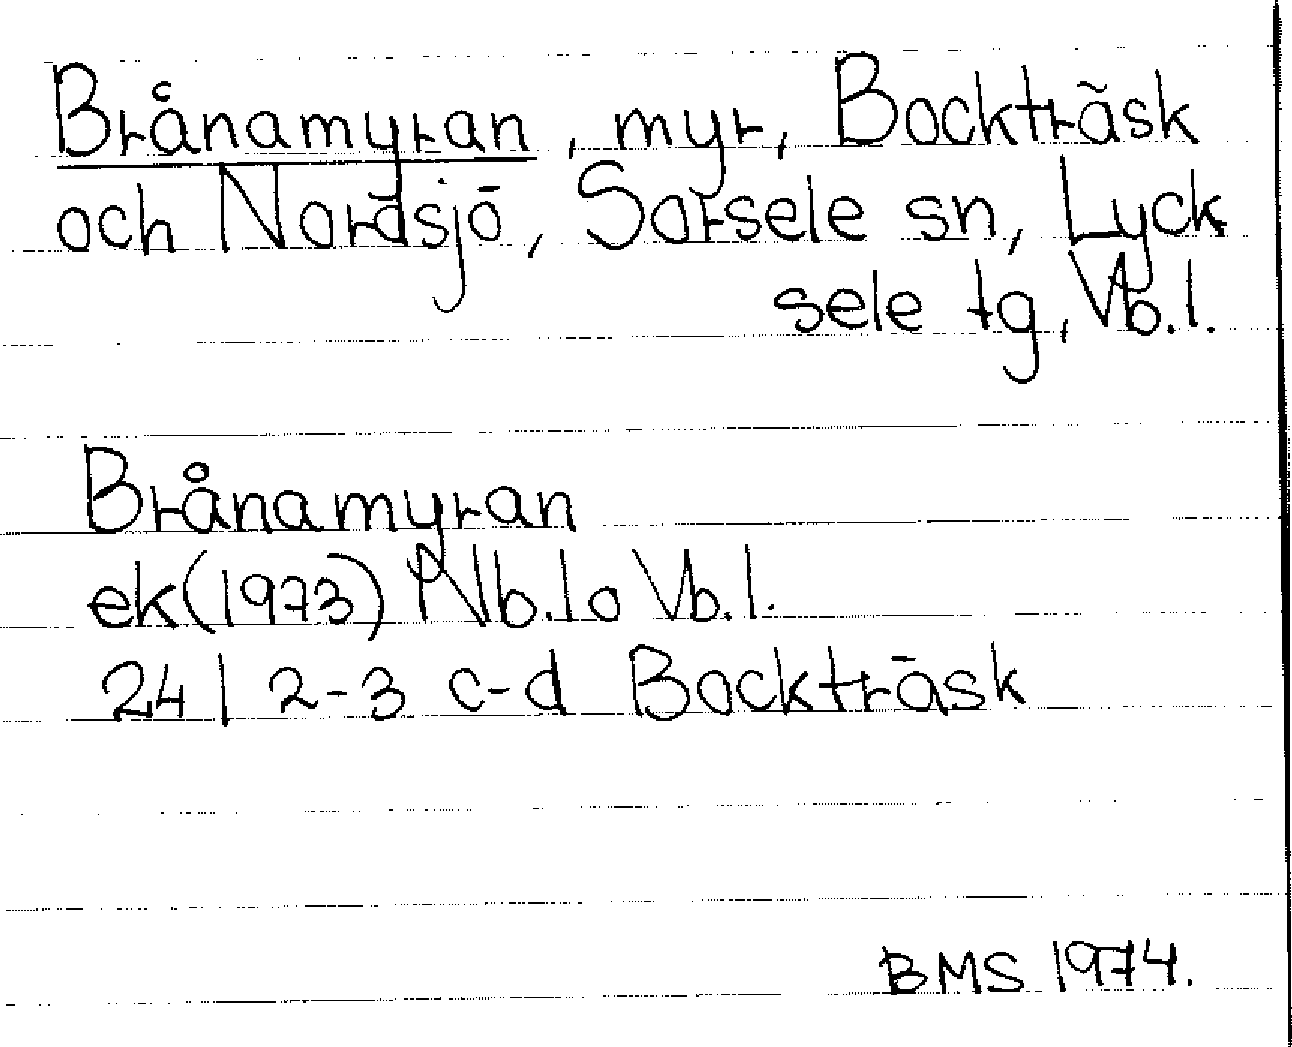 Brånamyran, myr, Bockträsk
och Nordsjö, Sorsele sn, Lyck
sele tg, Vb.l.
Brånamyran
ek(1973) Nb.lo Vb.l.
24 I 2-3 c-d Bockträsk
BMS 1974.